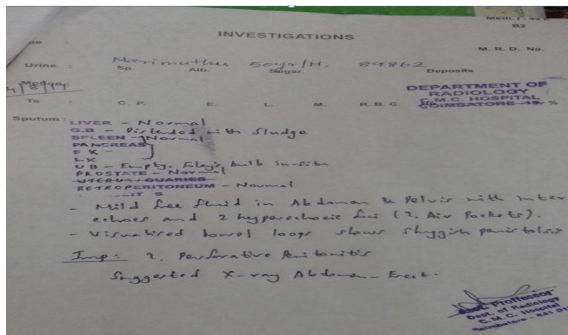 B2
INVESTIGATIONS
M. R. D. No.
Marimuthu 60yr/M. 89862
Urine Sp. Alb. Sugar. Deposits
DEPARTMENT OF
RADIOLOGY
C. P. E. L. M. R.B.C. C.M.C. HOSPITAL
COIMBATORE-18. %
Sputum: LIVER - Normal
G.B - Distended with Sludge
SPLEEN - Normal
PANCREAS
LK
UB - Empty, Foley's bulb in-situ
PROSTATE - Normal
UTERUS / OVARIES
RETROPERITONEUM - Normal
- Mild free fluid in Abdomen & Pelvis with inter
echoes and 2 hyperechoic foci (?. Air Pockets).
- Visualised bowel loops shows sluggish peristalsis
Imp: ?. Perforative Peritonitis
Suggested X-ray Abdomen-Erect.
Asst. Proffessor
Dept. of Radiology
C.M.C. Hospital